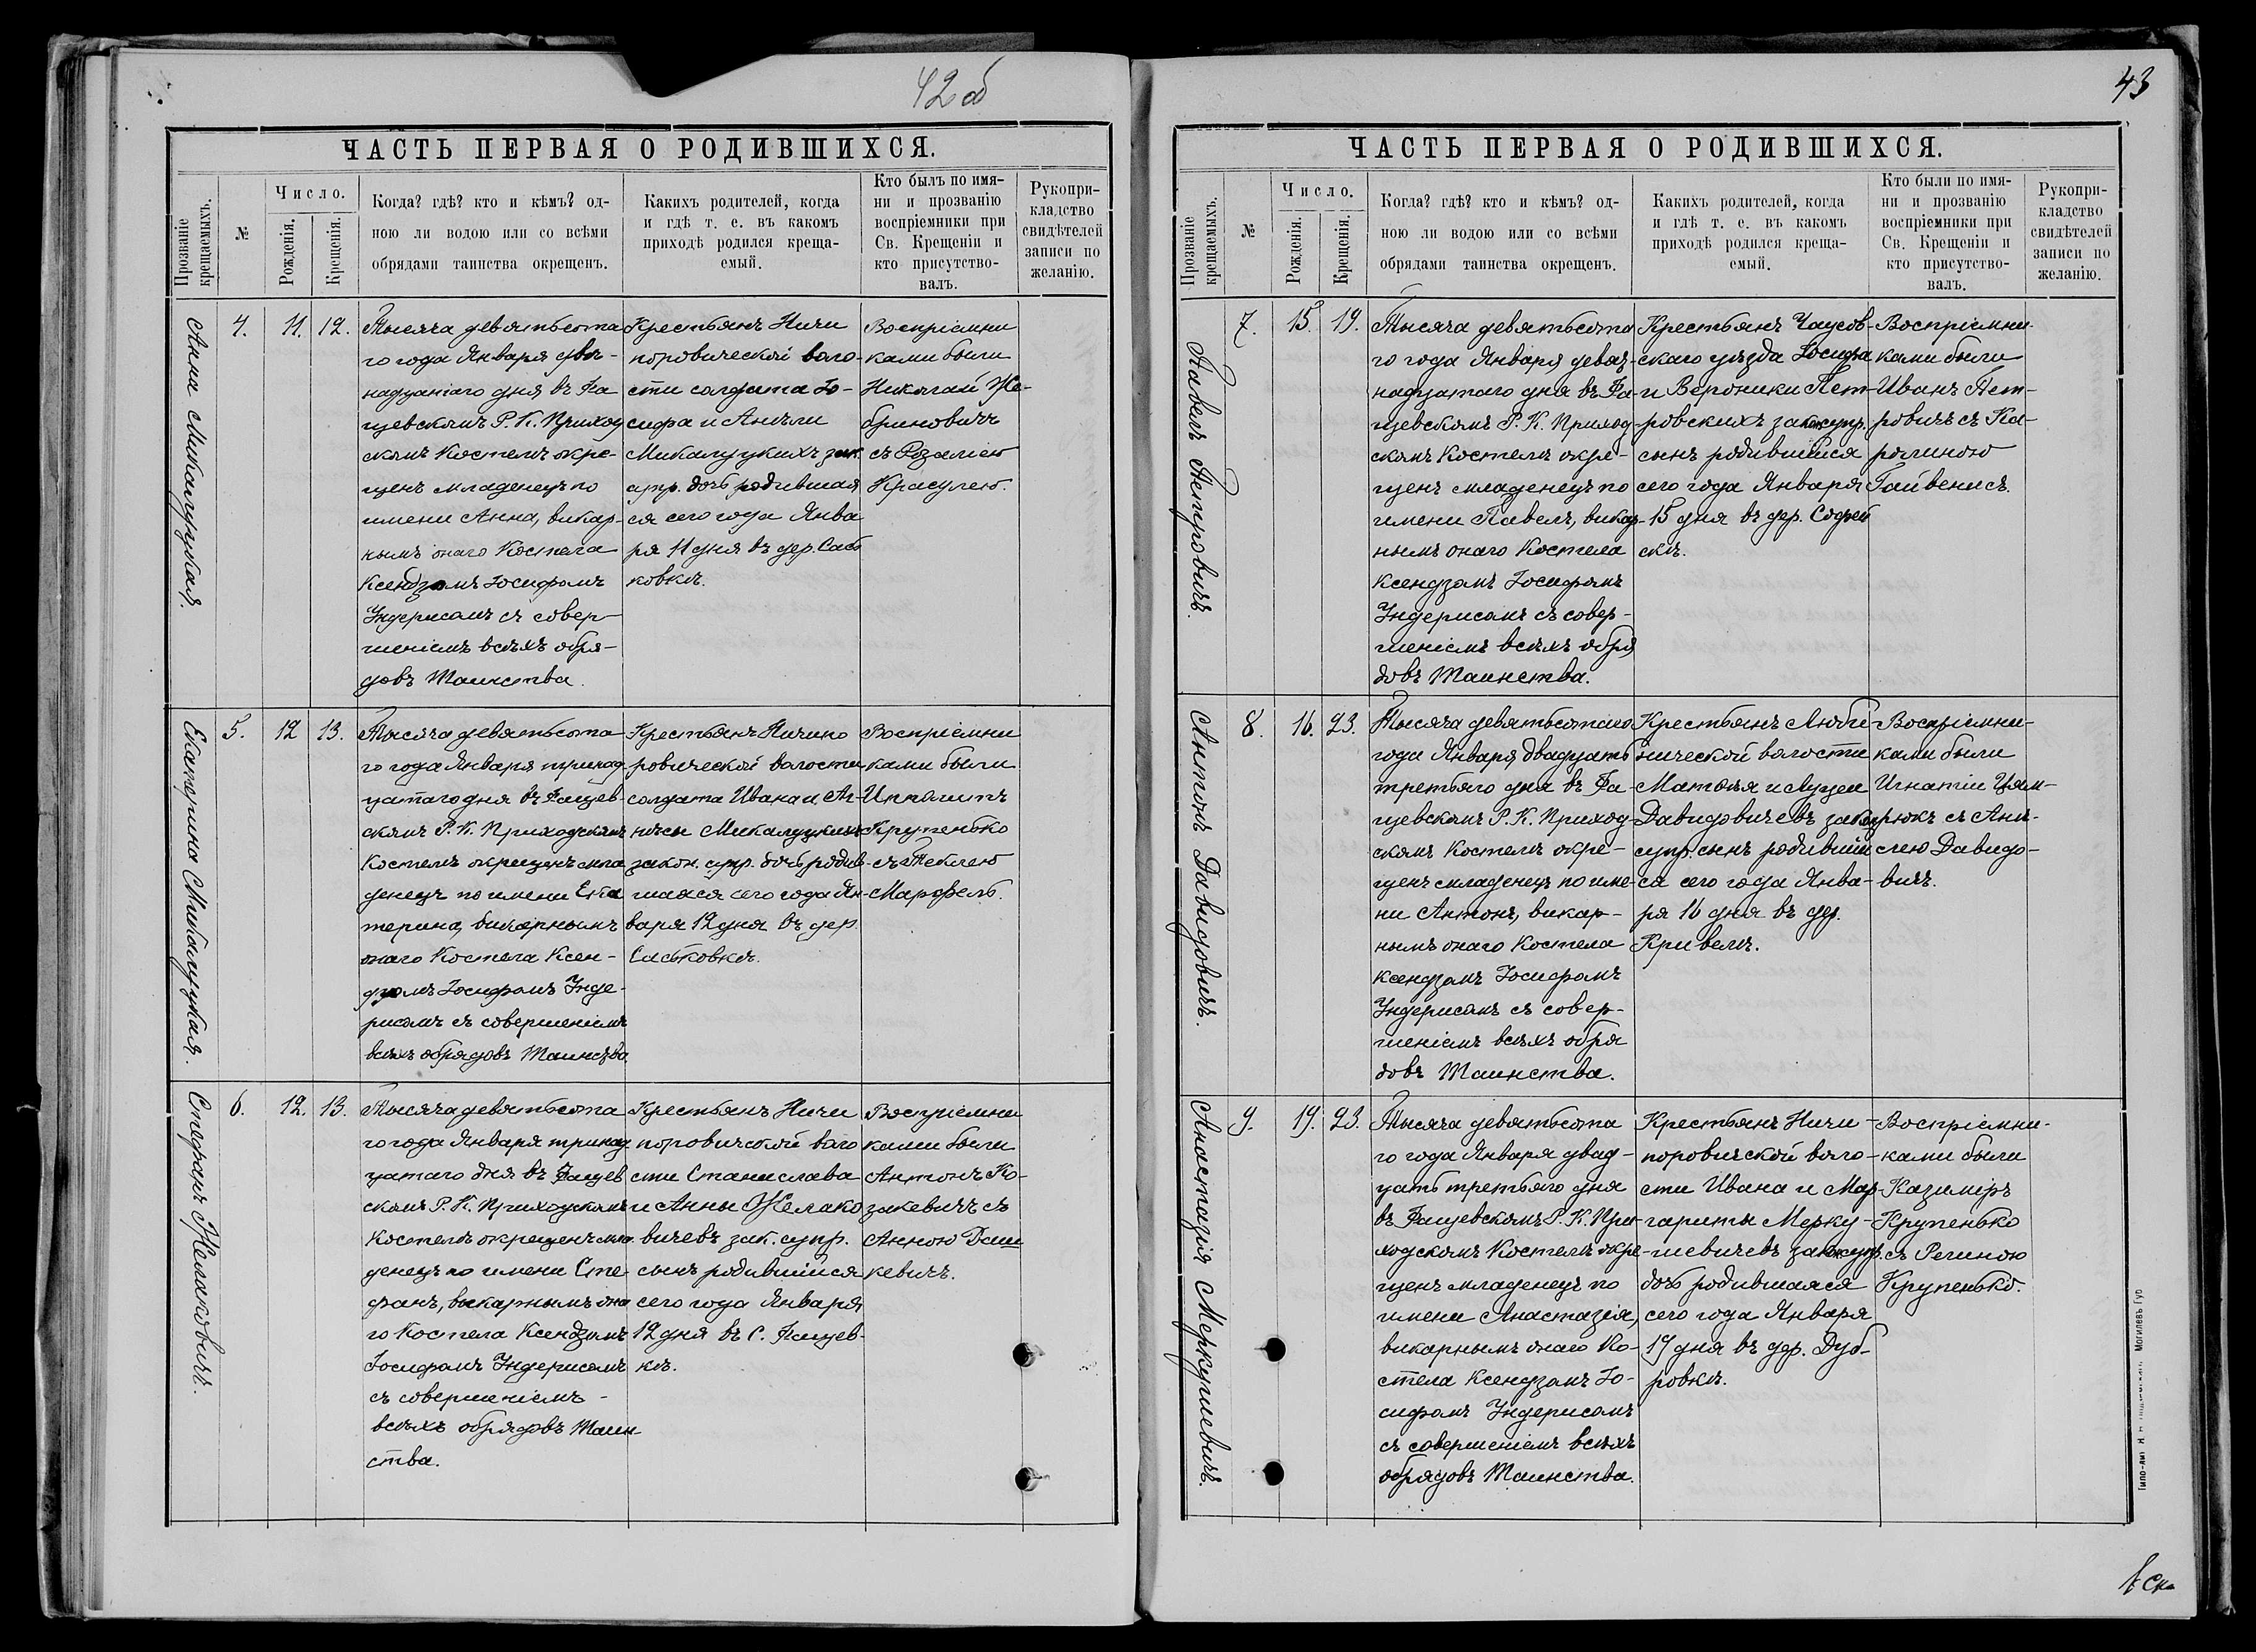 42 об
ЧАСТЬ ПЕРВАЯ О РОДИВШИХСЯ.
Прозваніе
крещаемыхъ.
№
Число.
Рожденія.
Крещенія.
Когда? гдѣ? кто и кѣмъ? од-
ною ли водою или со всѣми
обрядами таинства окрещенъ.
Какихъ родителей, когда
и гдѣ т. е. въ какомъ
приходѣ родился креща-
емый.
Кто былъ по имя-
ни и прозванію
воспріемники при
Св. Крещеніи и
кто присутство-
валъ.
Рукопри-
кладство
свидѣтелей
записи по
желанію.
Анна Микалуцкая.
4.
11.
12.
Тысяча девятьсота
го года Января два-
надцатаго дня въ Фа
щевскомъ Р. К. Приход
скомъ Костелѣ окре-
щенъ младенецъ по
имени Анна, викар-
нымъ онаго Костела
Ксендзомъ Іосифомъ
Индерисомъ съ совер-
шеніемъ всѣхъ обря-
довъ Таинства.
Крестьянъ Ничи
поровической воло-
сти солдата Іо-
сифа и Анѣли
Микалуцкихъ зак.
супр. дочь родившая
ся сего года Янва
ря 11 дня въ дер. Сась
ковкѣ.
Воспріемни
ками были
Николай Же-
бриновичъ
съ Розаліею
Красулею.
Екатерина Микалуцкая.
5.
12
13.
Тысяча девятьсота
го года Января тринад
цатаго дня въ Фащев-
скомъ Р. К. Приходскомъ
Костелѣ окрещенъ мла
денецъ по имени Ека
терина, викарнымъ
онаго Костела Ксен-
дзомъ Іосифомъ Инде-
рисомъ съ совершеніемъ
всѣхъ обрядовъ Таинства
Крестьянъ Ничипо
ровической волости
солдата Ивана и Аг-
нѣсы Микалуцкихъ
закон. супр. дочь родив-
шаяся сего года Ян-
варя 12 дня въ дер.
Саськовкѣ.
Воспріемни
ками были
Ипполитъ
Крупенько
съ Теклею
Марфель.
Стефанъ Желаковичъ.
6.
12.
13.
Тысяча девятьсота
го года Января тринад
цатаго дня въ Фащев
скомъ Р. К. Приходскомъ
Костелѣ окрещенъ мла
денецъ по имени Сте
фанъ, викарнымъ она
го Костела Ксендзомъ
Іосифомъ Индерисомъ
съ совершеніемъ -
всѣхъ обрядовъ Таин-
ства.
Крестьянъ Ничи
поровической воло
сти Станислава
и Анны Желако
вичевъ зак. супр.
сынъ родившійся
сего года Января
12 дня въ С. Фащев-
кѣ.
Воспріемни
ками были
Антонъ Ко-
закевичъ съ
Анною Даш
кевичъ.
43
ЧАСТЬ ПЕРВАЯ О РОДИВШИХСЯ.
Прозваніе
крещаемыхъ.
№
Число.
Рожденія.
Крещенія.
Когда? гдѣ? кто и кѣмъ? од-
ною ли водою или со всѣми
обрядами таинства окрещенъ.
Какихъ родителей, когда
и гдѣ т. е. въ какомъ
приходѣ родился креща-
емый.
Кто были по имя-
ни и прозванію
воспріемники при
Св. Крещеніи и
кто присутство-
валъ.
Рукопри-
кладство
свидѣтелей
записи по
желанію.
Павелъ Петровичъ.
7.
15.
19.
Тысяча девятьсота
го года Января девят-
надцатаго дня въ Фа-
щевскомъ Р. К. Приход-
скомъ Костелѣ окре-
щенъ младенецъ по
имени Павелъ, викар-
нымъ онаго Костела
Ксендзомъ Іосифомъ
Индерисомъ съ совер-
шеніемъ всѣхъ обря
довъ Таинства.
Крестьянъ Чаусов-
скаго уѣзда Іосифа
и Вероники Пет-
ровскихъ закон. супр.
сынъ родившійся
сего года Января
15 дня въ дер. Софей
скѣ.
Воспріемни-
ками были
Иванъ Пет-
ровичъ съ Ка-
ролиною
Гайвенисъ.
Антонъ Давидовичъ.
8.
16.
23.
Тысяча девятьсотаго
года Января двадцать
третьяго дня въ Фа-
щевскомъ Р. К. Приход-
скомъ Костелѣ окре-
щенъ младенецъ по име-
ни Антонъ, викар-
нымъ онаго Костела
Ксендзомъ Іосифомъ
Индерисомъ съ совер-
шеніемъ всѣхъ обря
довъ Таинства.
Крестьянъ Люби-
нической волости
Матвѣя и Луціи
Давидовичевъ закон
супр. сынъ родившій
ся сего года Янва-
ря 16 дня въ дер.
Кривелѣ.
Воспріемни-
ками были
Игнатій
съ Анѣ-
лею Давидо-
вичъ.
Анастазія Меркушевичъ.
9.
19.
23.
Тысяча девятьсота
го года Января двад-
цать третьяго дня
въ Фащевскомъ Р. К. При-
ходскомъ Костелѣ окре-
щенъ младенецъ по
имени Анастазія,
викарнымъ онаго Ко-
стела Ксендзомъ Іо-
сифомъ Индерисомъ
съ совершеніемъ всѣхъ
обрядовъ Таинства.
Крестьянъ Ничи-
поровической воло-
сти Ивана и Мар-
гариты Мерку-
шевичевъ закон. супр.
дочь родившаяся
сего года Января
19 дня въ дер. Дуб-
ровкѣ.
Воспріемни-
ками были
Казиміръ
Крупенько
съ Региною
Крупенько.
Могилевъ Губ